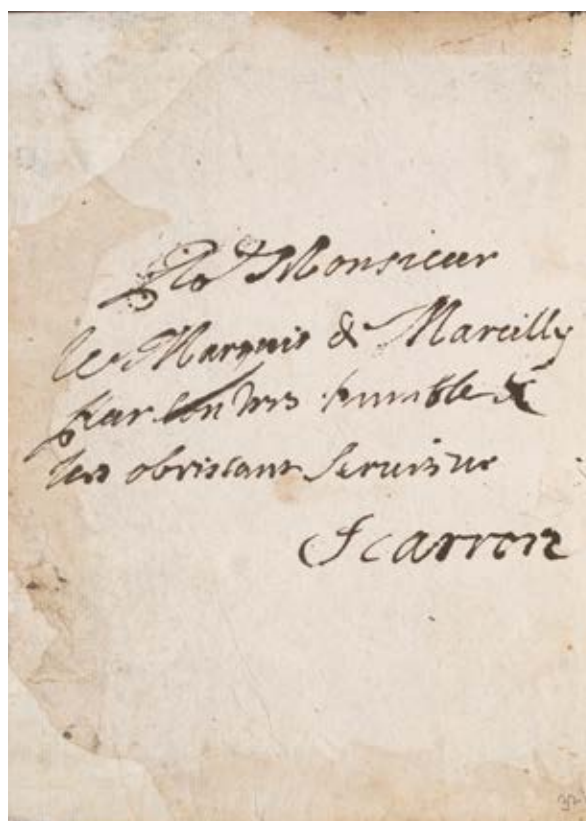 Pour Monsieur
le Marquis de Marcilly
par son tres humble &
tres obeissant seruiteur
Scarron
32